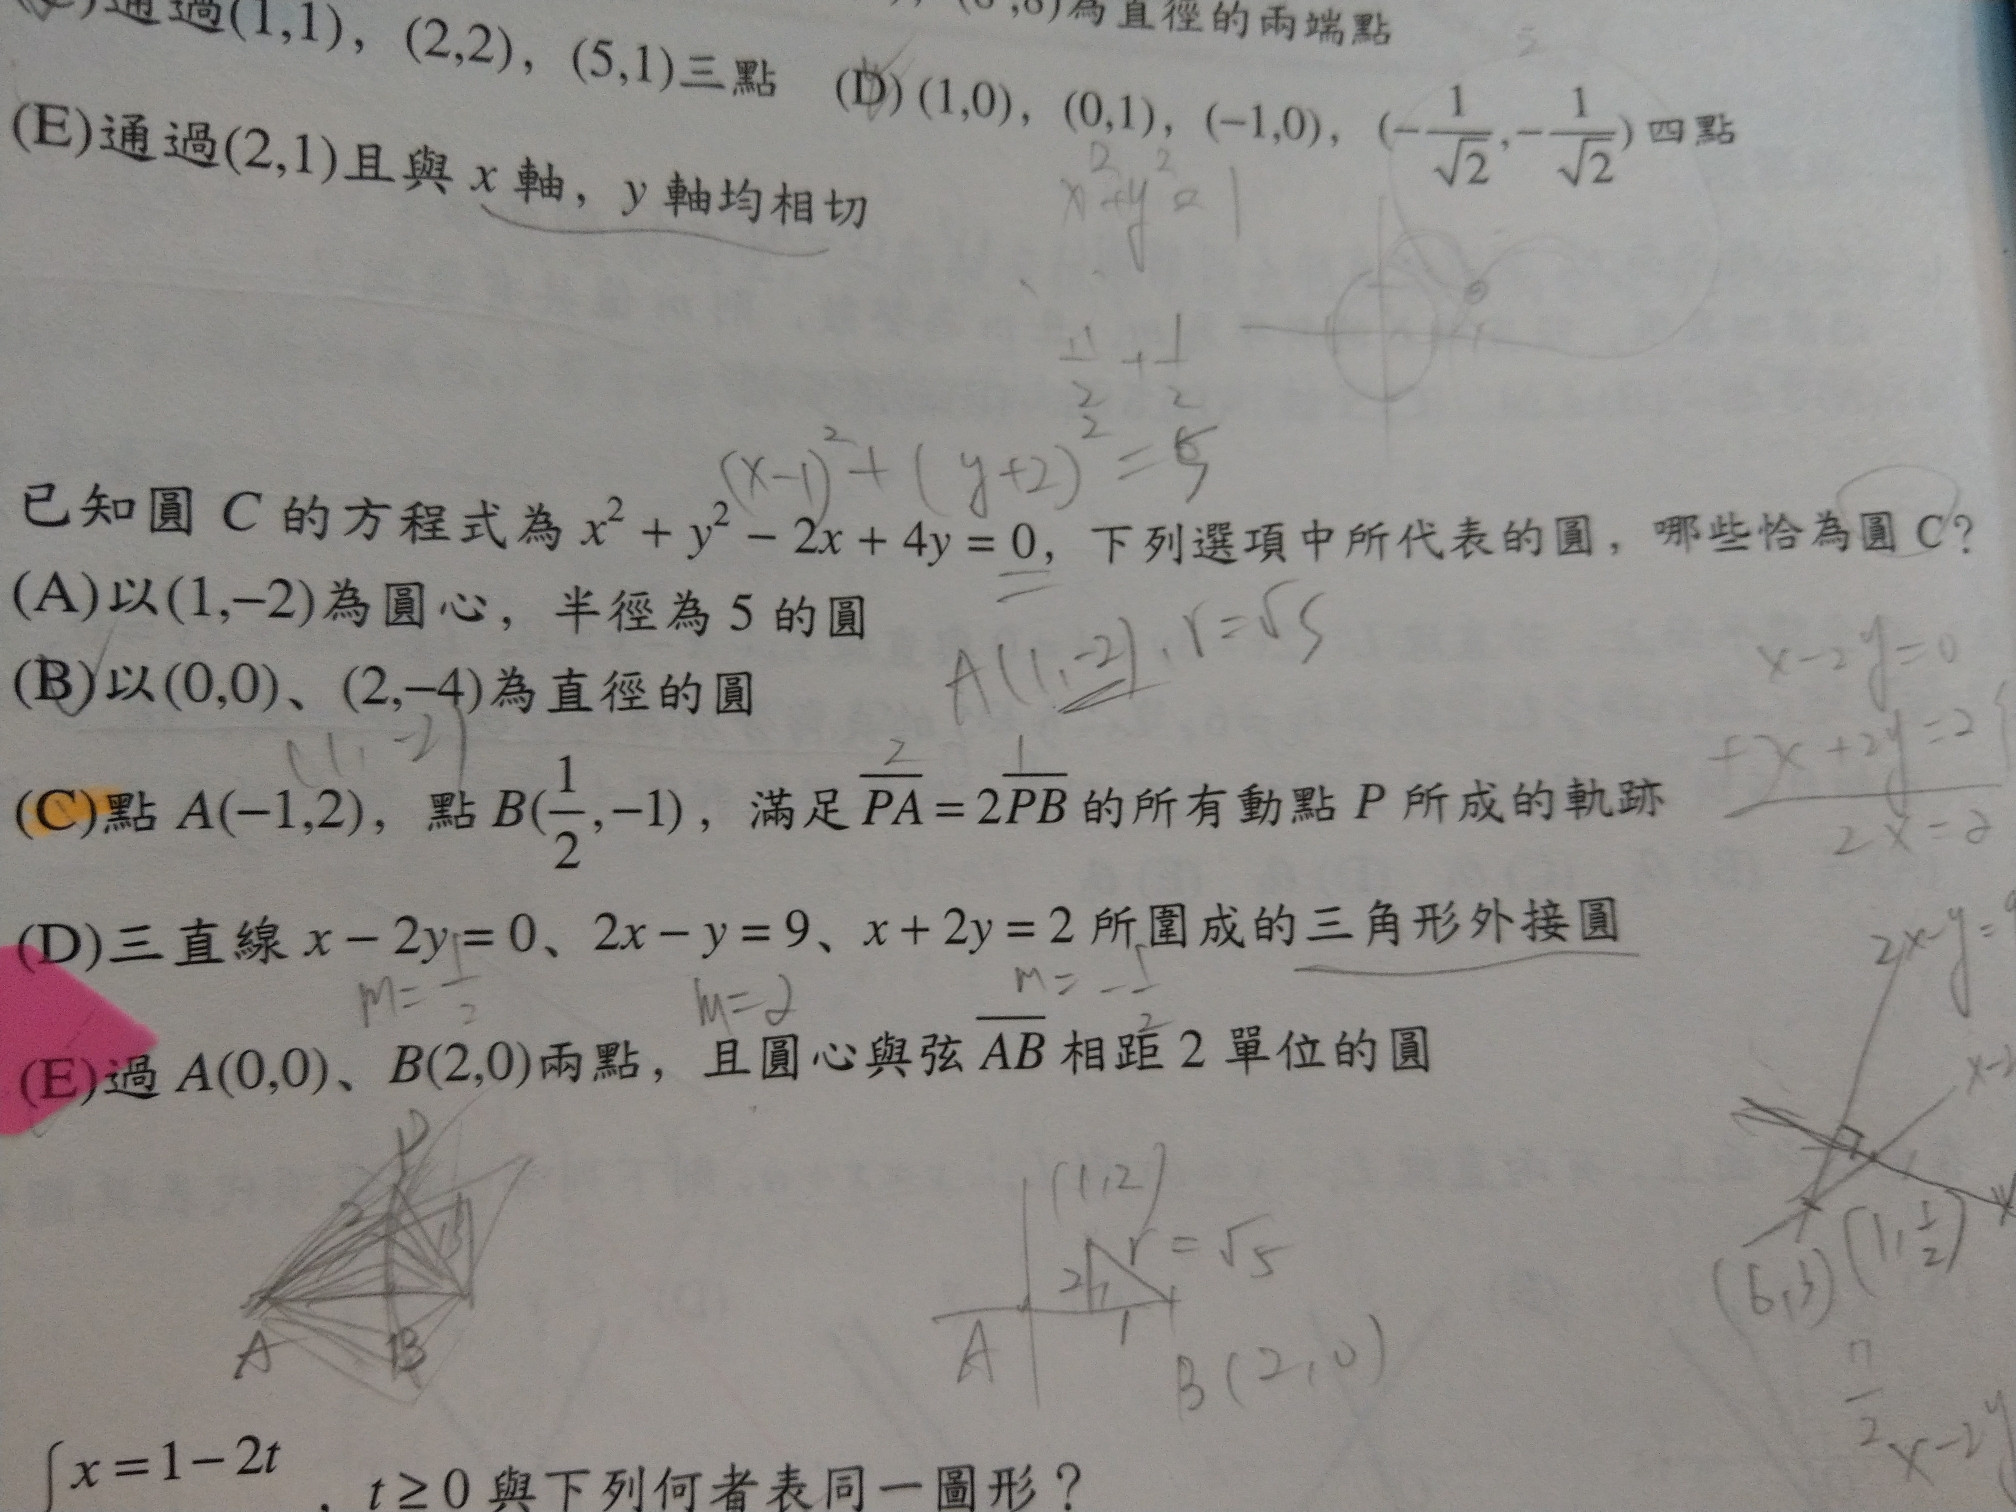 通過(1,1)，(2,2)，(5,1)三點
,8)為直徑的兩端點
(D)(1,0)，(0,1)，(−1,0)，(−1/√2,−1/√2)四點
(E)通過(2,1)且與 x 軸，y 軸均相切
x²+y²=1
1/2+1/2
(x-1)²+(y+2)²=5
已知圓 C 的方程式為 x² + y² − 2x + 4y = 0，下列選項中所代表的圓，哪些恰為圓 C？
(A)以(1,−2)為圓心，半徑為 5 的圓
A(1,-2), r=√5
(B)以(0,0)、(2,−4)為直徑的圓
(1,-2)
x-2y=0
+x+2y=2
2x=2
2 1
(C)點 A(−1,2)，點 B(1/2,−1)，滿足 PA = 2PB 的所有動點 P 所成的軌跡
(D)三直線 x − 2y = 0、2x − y = 9、x + 2y = 2 所圍成的三角形外接圓
m=1/2 m=2 m=-1/2
2x-y=9
(E)過 A(0,0)、B(2,0)兩點，且圓心與弦 AB 相距 2 單位的圓
(1,2)
r=√5
2
1
(6,3) (1,1/2)
A B
A
B(2,0)
x-2y
x = 1 − 2t
，t ≥ 0 與下列何者表同一圖形？